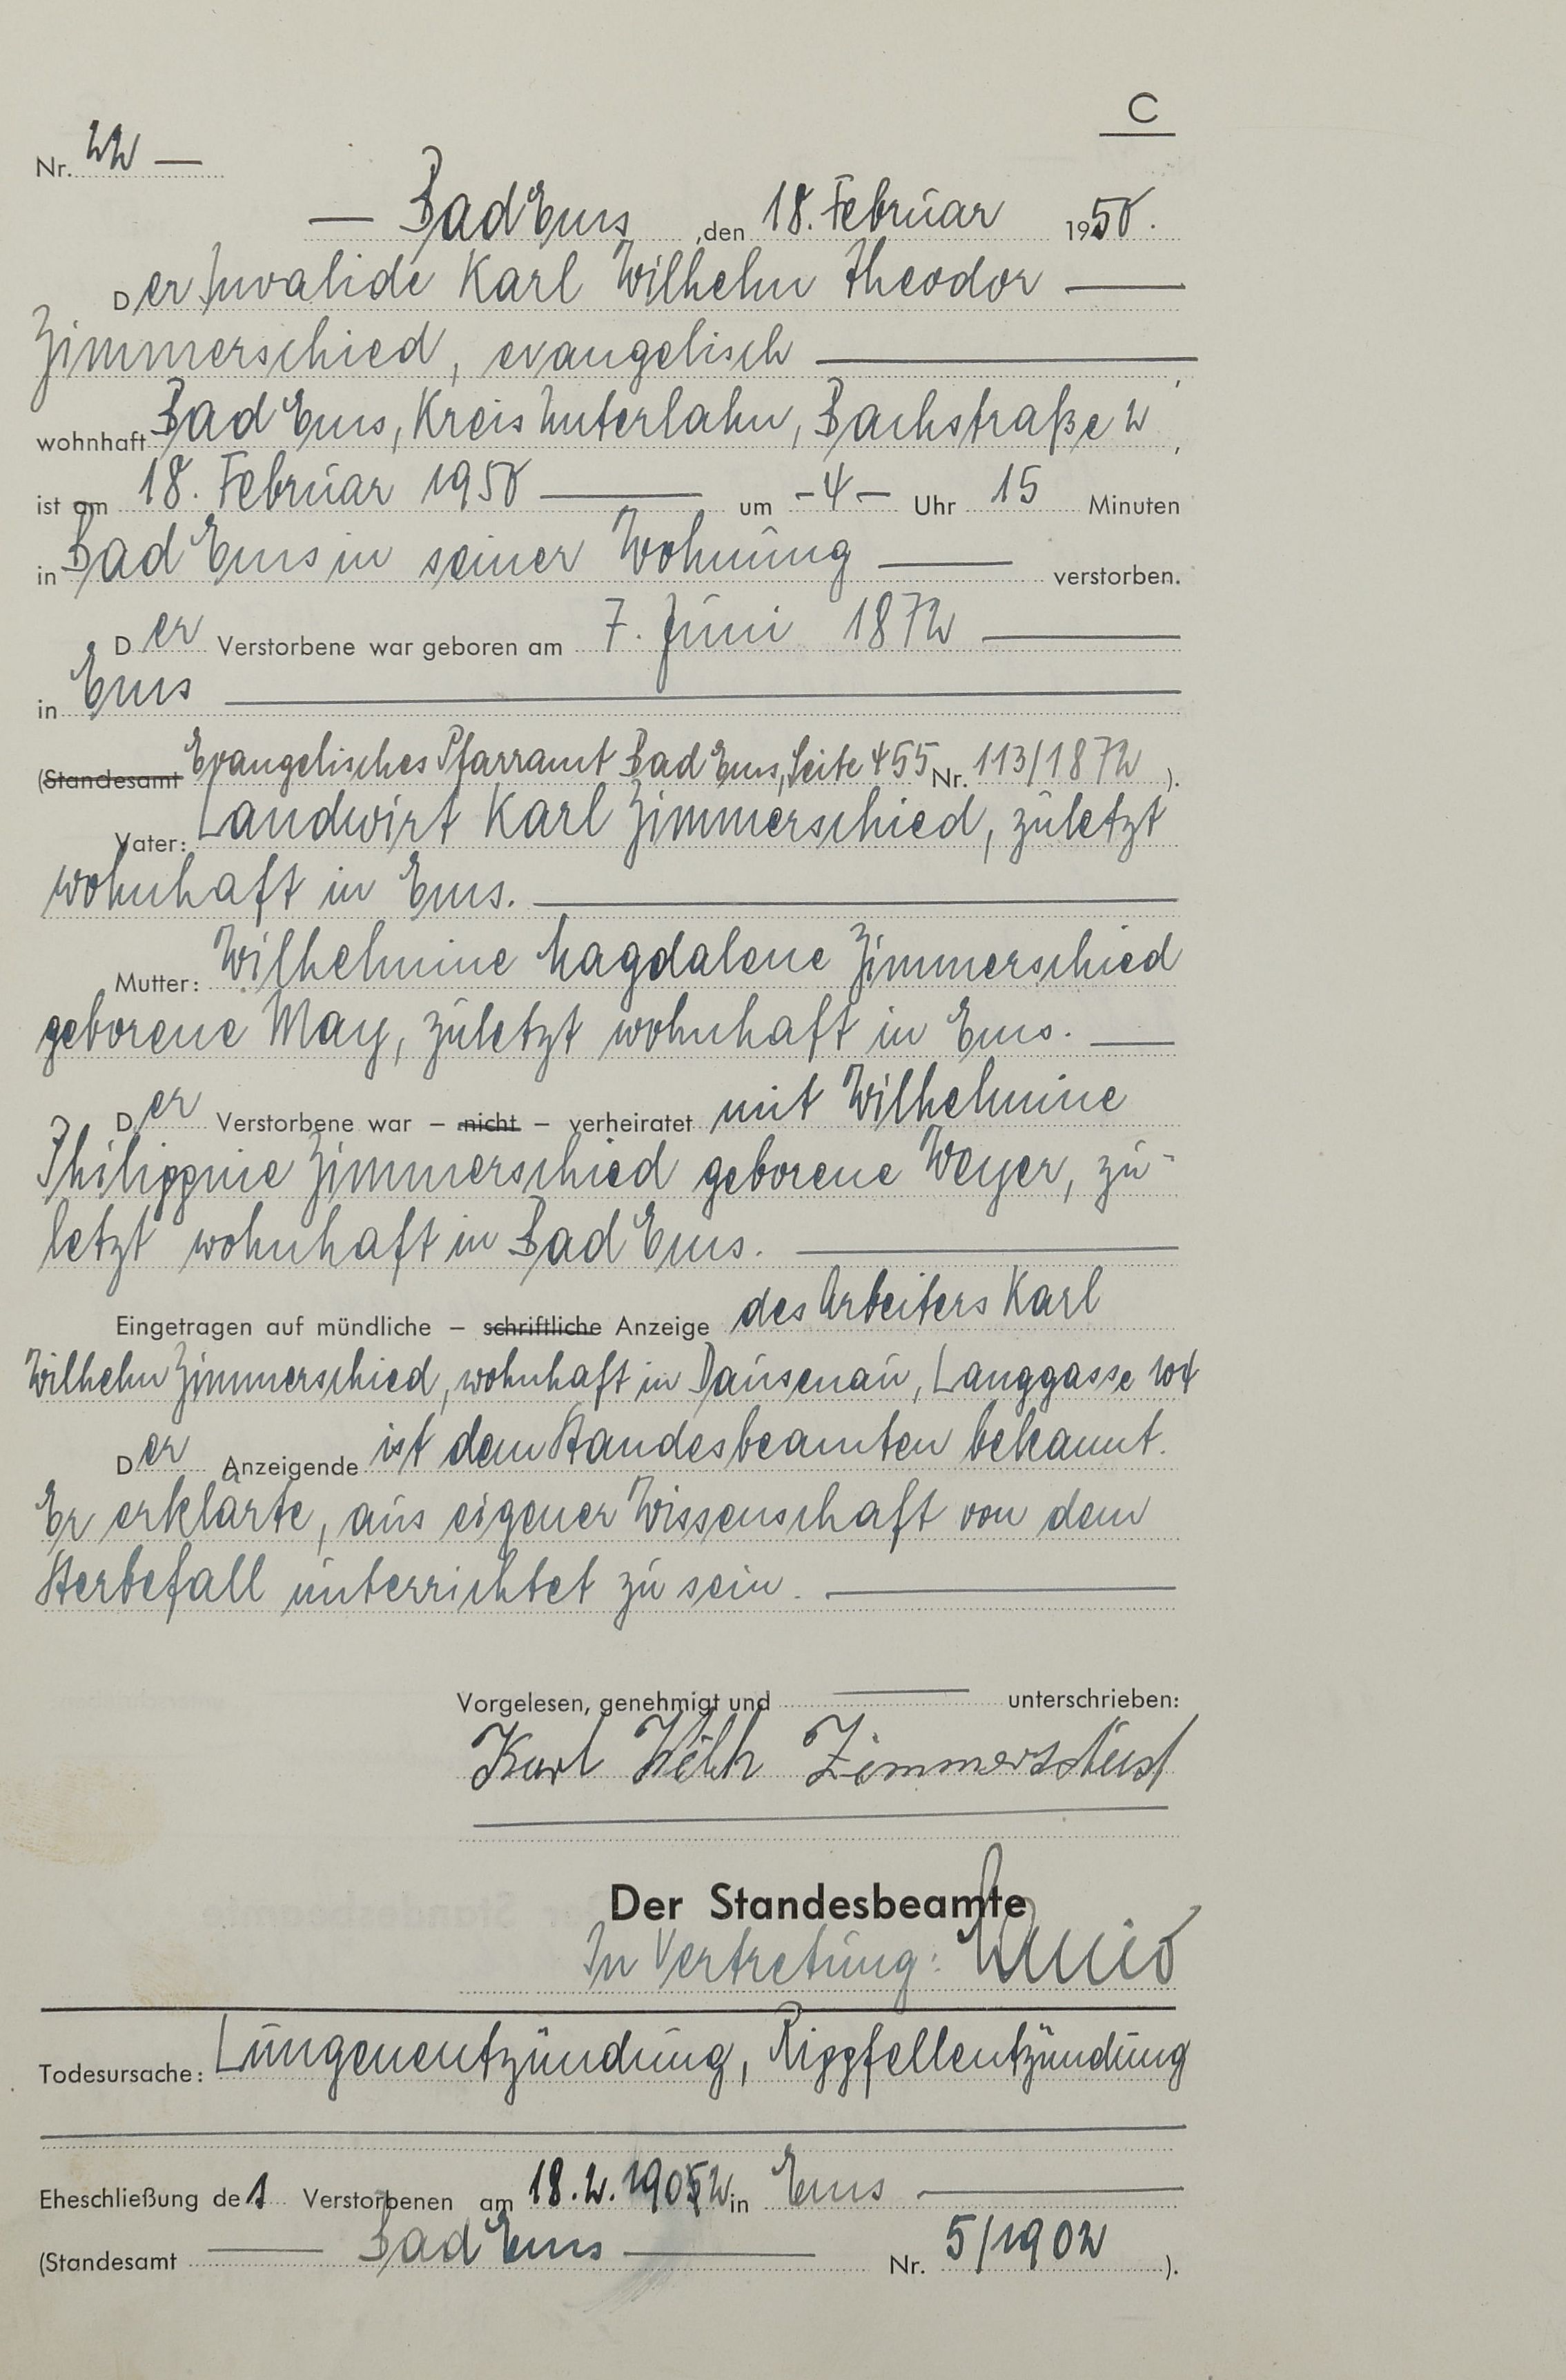 C
Nr. 22 —
— Bad Ems, den 18. Februar 1950.
Der Invalide Karl Wilhelm Theodor —
Zimmerschied, evangelisch —,
wohnhaft Bad Ems, Kreis Unterlahn, Bachstraße 2,
ist am 18. Februar 1950 — um -4- Uhr 15 Minuten
in Bad Ems in seiner Wohnung — verstorben.
Der Verstorbene war geboren am 7. Juni 1872 —
in Ems —
(Standesamt Evangelisches Pfarramt Bad Ems, Seite 455 Nr. 113/1872).
Vater: Landwirt Karl Zimmerschied, zuletzt
wohnhaft in Ems. —
Mutter: Wilhelmine Magdalene Zimmerschied
geborene May, zuletzt wohnhaft in Ems. —
Der Verstorbene war – nicht – verheiratet mit Wilhelmine
Philippine Zimmerschied geborene Weyer, zu-
letzt wohnhaft in Bad Ems. —
Eingetragen auf mündliche – schriftliche Anzeige des Arbeiters Karl
Wilhelm Zimmerschied, wohnhaft in Dausenau, Langgasse 104
Der Anzeigende ist dem Standesbeamten bekannt.
Er erklärte, aus eigener Wissenschaft von dem
Sterbefall unterrichtet zu sein. —
Vorgelesen, genehmigt und — unterschrieben:
Karl Wilh Zimmerschied
Der Standesbeamte
In Vertretung:
Todesursache: Lungenentzündung, Rippfellentzündung
Eheschließung des Verstorbenen am 18.2.1902 in Ems —
(Standesamt — Bad Ems — Nr. 5/1902).